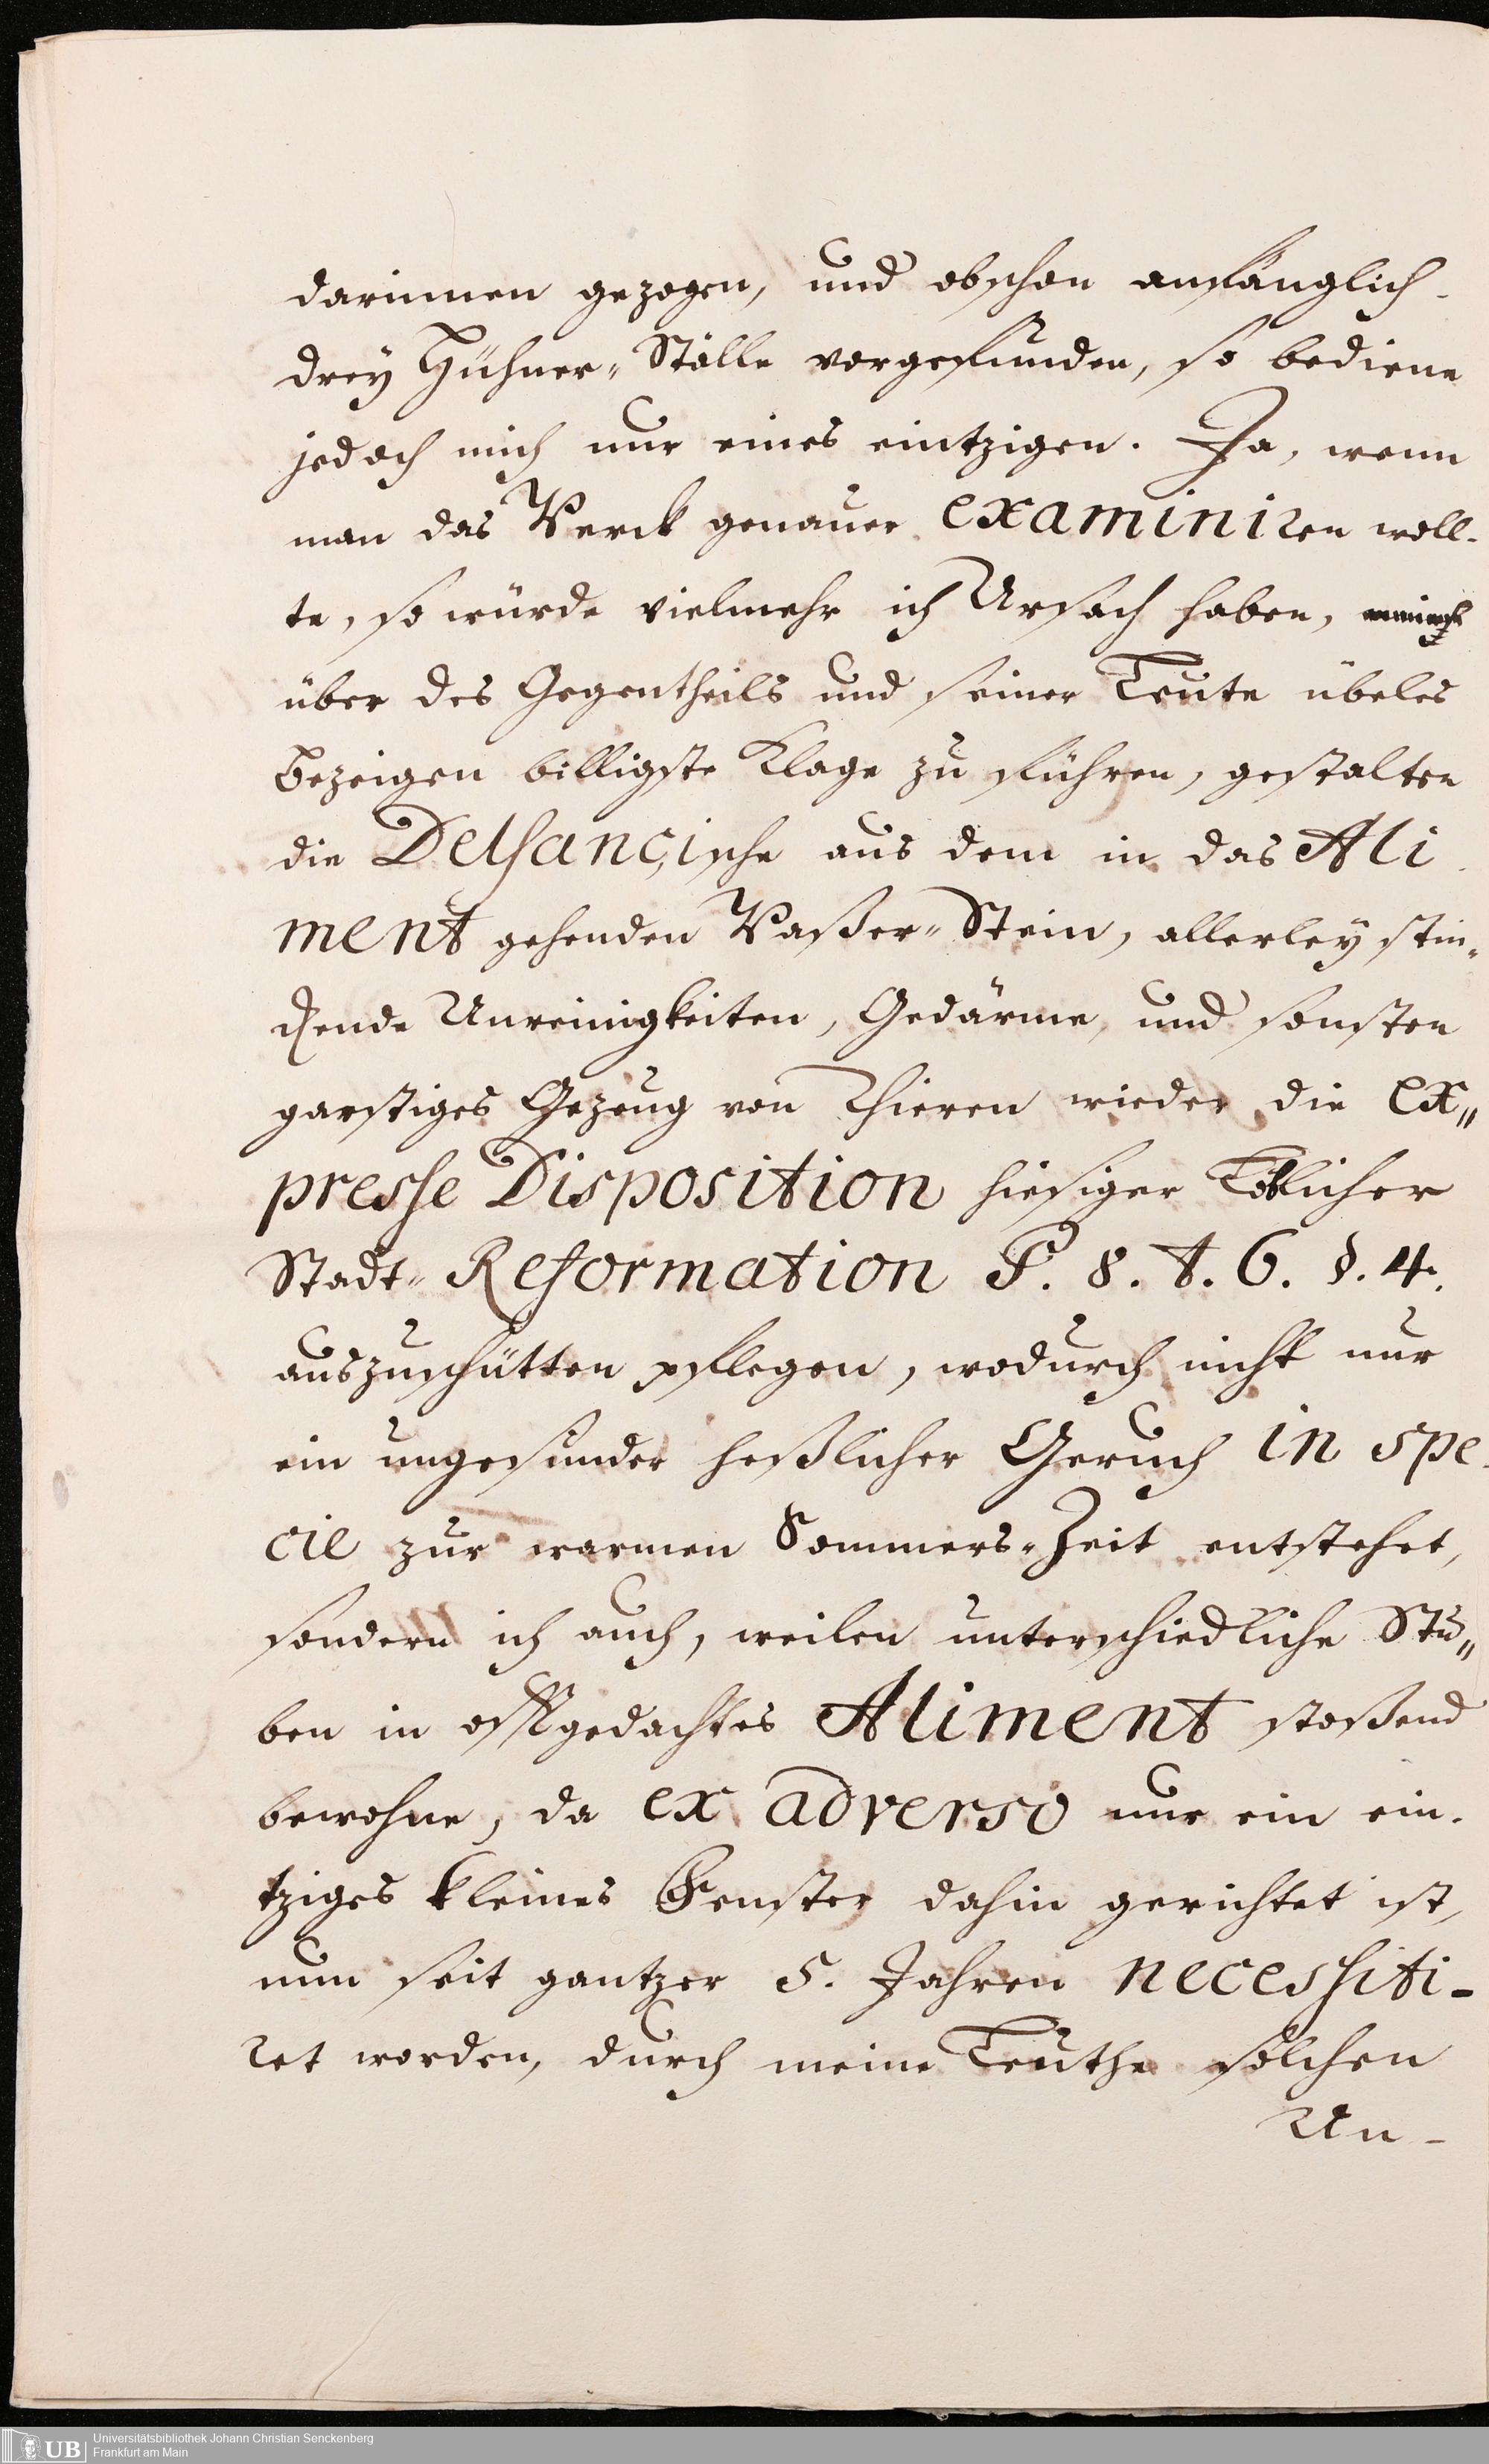 darinnen gezogen, und obschon anfänglich
drey Hühner-Ställe vorgefunden, so bediene
jedoch mich nur eines eintzigen. Ja, wenn
man das Werck genauer examiniren woll-
te, so würde vielmehr ich Ursach haben,
über des Gegentheils und seiner Leute übeles
Bezeigen billigste Klage zu führen, gestalten
die Delsançische aus dem in das Ali-
ment gehenden Waßer-Stein, allerley stin-
ckende Unreinigkeiten, Gedärme, und sonsten
garstiges Gezeug von Thieren wieder die ex-
presse Disposition hiesiger Löblicher
Stadt-Reformation P. 8. t. 6. §. 4.
auszuschütten pflegen, wodurch nicht nur
ein ungesunder heßlicher Geruch in spe-
cie zur warmen Sommers-Zeit entstehet,
sondern ich auch, weilen unterschiedliche Stu-
ben in offtgedachtes Aliment stoßend
bewohne, da ex adverso nur ein ein-
tziges kleines Fenster dahin gerichtet ist,
nun seit gantzer 5. Jahren necessiti-
ret worden, durch meine Leuthe solchen
Un-
Universitätsbibliothek Johann Christian Senckenberg
UB Frankfurt am Main